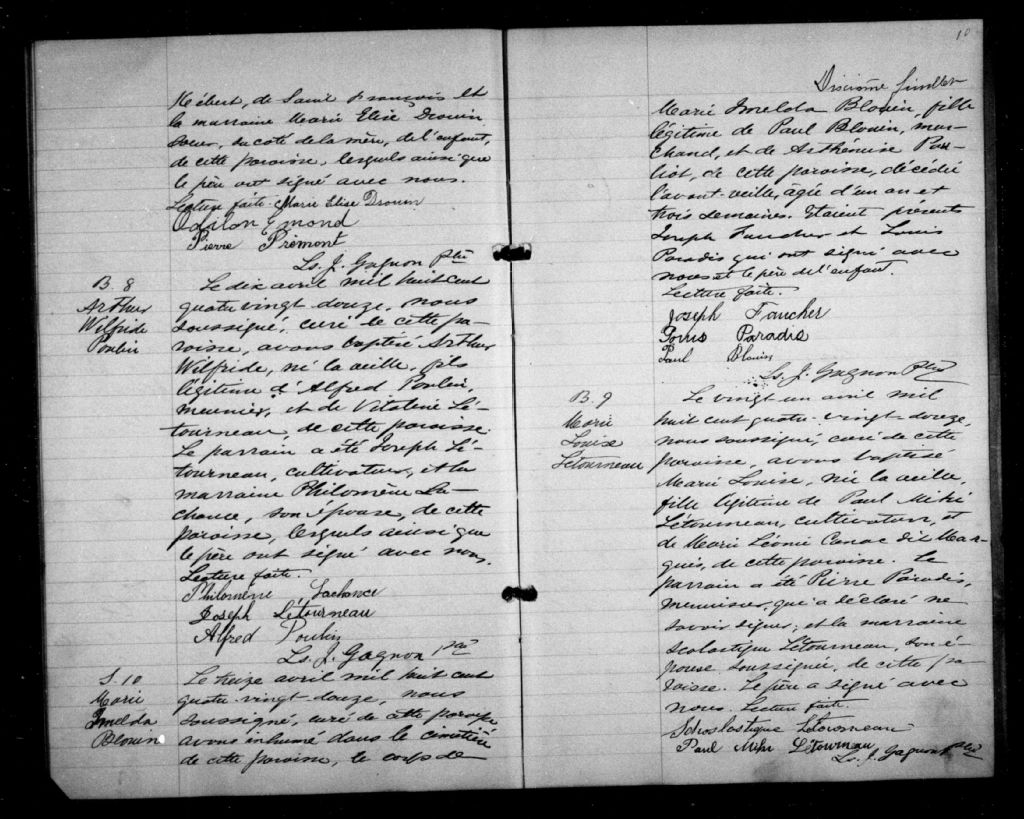 Hébert, de Saint François et
la marraine Marie Elise Drouin
soeur, du coté de la mère, de l'enfant,
de cette paroisse, lesquels ainsi que
le père ont signé avec nous.
Lecture faite. Marie Elise Drouin
Odilon Emond
Pierre Prémont
Ls. J. Gagnon Ptre
B. 8
Arthur
Wilfride
Poulin
Le dix avril mil huit cent
quatre vingt douze, nous
soussigné, curé de cette pa-
roisse, avons baptisé Arthur
Wilfride, né la veille, fils
légitime d'Alfred Poulin,
meunier, et de Vitaline Lé-
tourneau, de cette paroisse.
Le parrain a été Joseph Lé-
tourneau, cultivateur, et la
marraine Philomène La-
chance, son épouse, de cette
paroisse, lesquels ainsi que
le père ont signé avec nous.
Lecture faite.
Philomène Lachance
Joseph Létourneau
Alfred Poulin
Ls. J. Gagnon ptre
S. 10
Marie
Imelda
Blouin
Le treize avril mil huit cent
quatre-vingt-douze, nous
soussigné, curé de cette paroisse
avons inhumé dans le cimetière
de cette paroisse, le corps de
10
Dixième feuillet
Marie Imelda Blouin, fille
légitime de Paul Blouin, mar-
chand, et de Arthémise Pou-
liot, de cette paroisse, décédée
l'avant-veille, âgée d'un an et
trois semaines. Etaient présents
Joseph Faucher et Louis
Paradis qui ont signé avec
nous et le père de l'enfant.
Lecture faite.
Joseph Faucher
Louis Paradis
Paul Blouin
Ls. J. Gagnon Ptre
B. 9
Marie
Louise
Létourneau
Le vingt un avril mil
huit cent quatre-vingt-douze,
nous soussigné, curé de cette
paroisse, avons baptisé
Marie Louise, née la veille,
fille légitime de Paul Miké
Létourneau, cultivateur, et
de Marie Léonie Canac dit Mar-
quis, de cette paroisse. Le
parrain a été Pierre Paradis,
menuisier, qui a déclaré ne
savoir signer; et la marraine
Scolastique Létourneau, son é-
pouse soussignée, de cette pa-
roisse. Le père a signé avec
nous. Lecture faite.
Scholastique Létourneau
Paul Létourneau
Ls. J. Gagnon Ptre